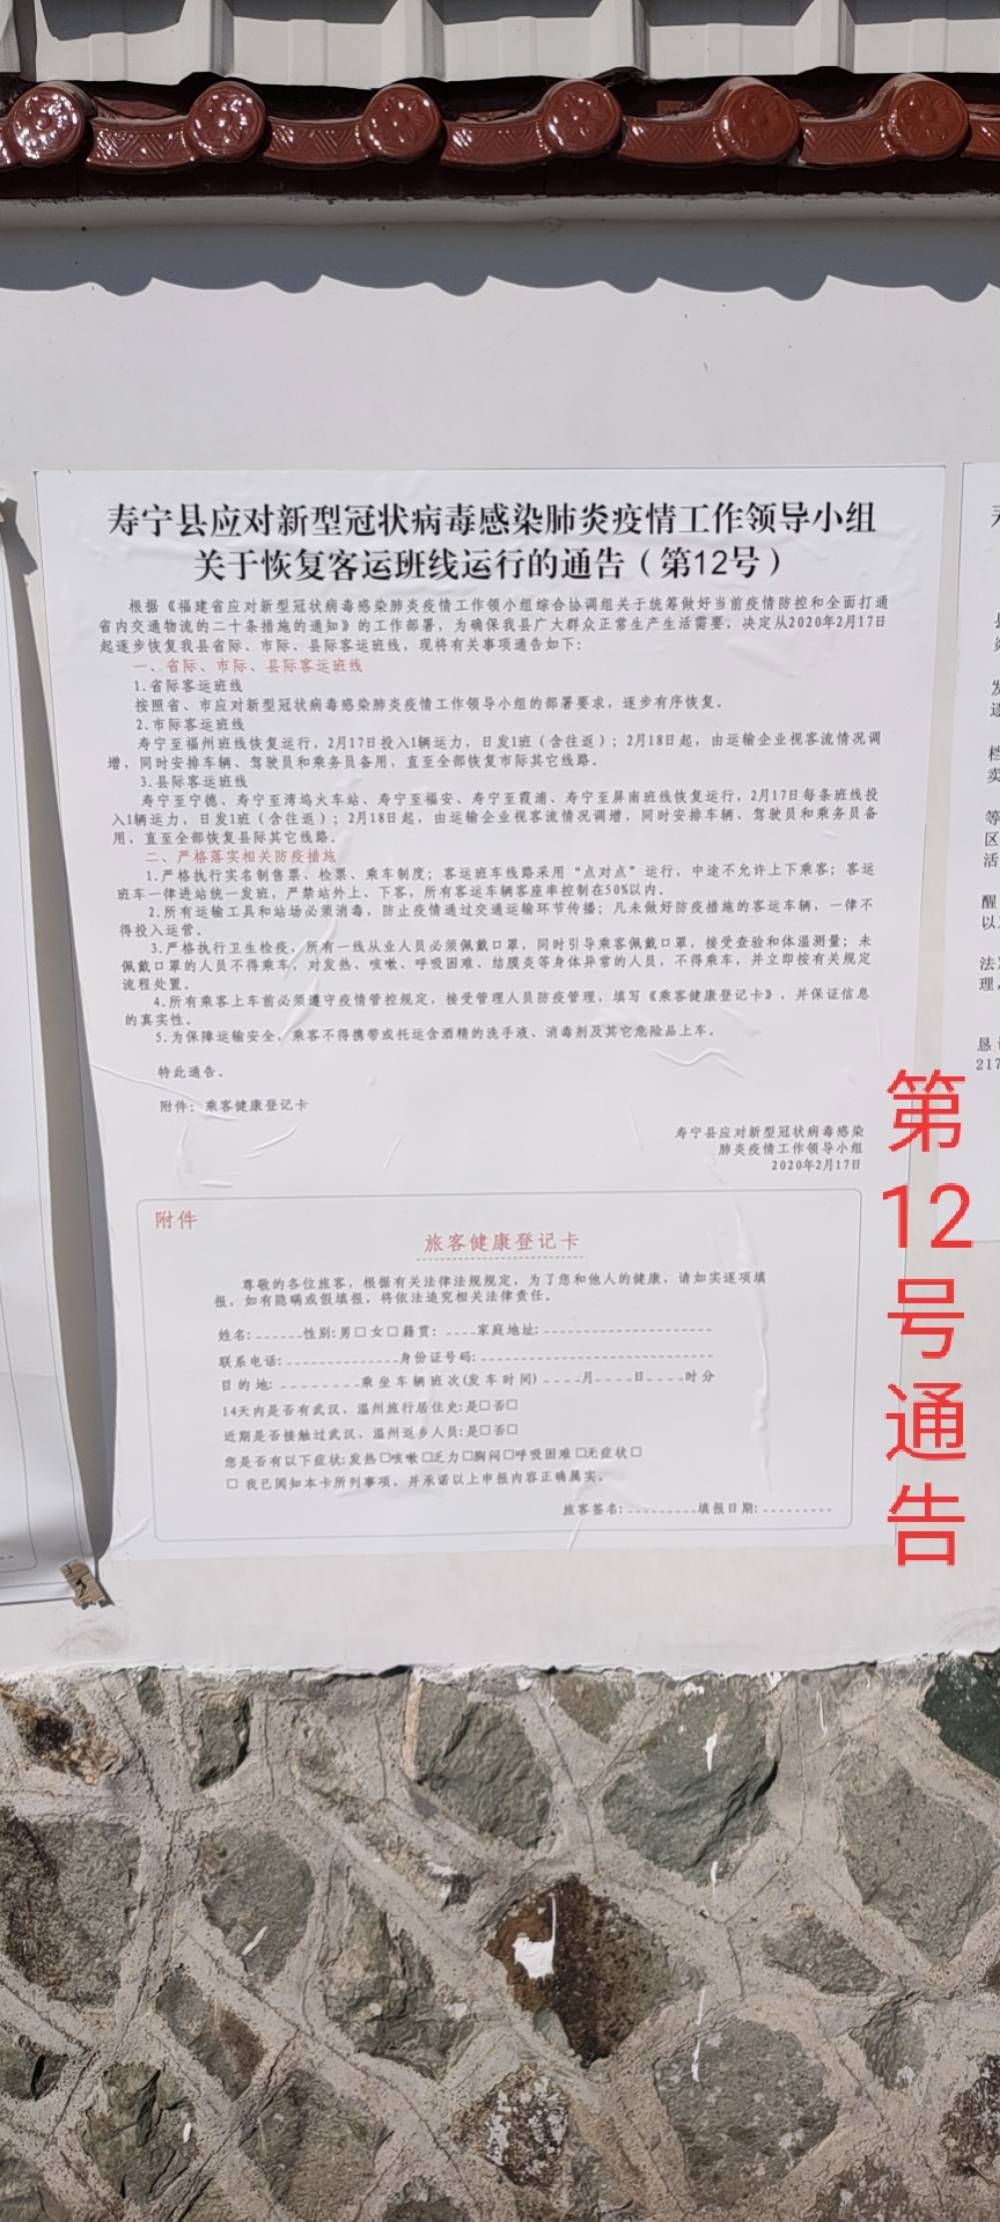 寿宁县应对新型冠状病毒感染肺炎疫情工作领导小组
关于恢复客运班线运行的通告（第12号）
根据《福建省应对新型冠状病毒感染肺炎疫情工作领小组综合协调组关于统筹做好当前疫情防控和全面打通
省内交通物流的二十条措施的通知》的工作部署，为确保我县广大群众正常生产生活需要，决定从2020年2月17日
起逐步恢复我县省际、市际、县际客运班线，现将有关事项通告如下：
一、省际、市际、县际客运班线
1.省际客运班线
按照省、市应对新型冠状病毒感染肺炎疫情工作领导小组的部署要求，逐步有序恢复。
2.市际客运班线
寿宁至福州班线恢复运行，2月17日投入1辆运力，日发1班（含往返）；2月18日起，由运输企业视客流情况调
增，同时安排车辆、驾驶员和乘务员备用，直至全部恢复市际其它线路。
3.县际客运班线
寿宁至宁德、寿宁至湾坞火车站、寿宁至福安、寿宁至霞浦、寿宁至屏南班线恢复运行，2月17日每条班线投
入1辆运力，日发1班（含往返）；2月18日起，由运输企业视客流情况调增，同时安排车辆、驾驶员和乘务员备
用，直至全部恢复县际其它线路。
二、严格落实相关防疫措施
1.严格执行实名制售票、检票、乘车制度；客运班车线路采用“点对点”运行，中途不允许上下乘客；客运
班车一律进站统一发班，严禁站外上、下客，所有客运车辆客座率控制在50%以内。
2.所有运输工具和站场必须消毒，防止疫情通过交通运输环节传播；凡未做好防疫措施的客运车辆，一律不
得投入运营。
3.严格执行卫生检疫，所有一线从业人员必须佩戴口罩，同时引导乘客佩戴口罩，接受查验和体温测量；未
佩戴口罩的人员不得乘车，对发热、咳嗽、呼吸困难、结膜炎等身体异常的人员，不得乘车，并立即按有关规定
流程处置。
4.所有乘客上车前必须遵守疫情管控规定，接受管理人员防疫管理，填写《乘客健康登记卡》，并保证信息
的真实性。
5.为保障运输安全，乘客不得携带或托运含酒精的洗手液、消毒剂及其它危险品上车。
特此通告。
附件：乘客健康登记卡
寿宁县应对新型冠状病毒感染
肺炎疫情工作领导小组
2020年2月17日
附件
旅客健康登记卡
尊敬的各位旅客，根据有关法律法规规定，为了您和他人的健康，请如实逐项填
报，如有隐瞒或假填报，将依法追究相关法律责任。
姓名:______性别:男□女□籍贯:____家庭地址:____________________
联系电话:______________身份证号码:____________________________
目的地:__________乘坐车辆班次(发车时间)____月____日____时分
14天内是否有武汉、温州旅行居住史:是□否□
近期是否接触过武汉、温州返乡人员:是□否□
您是否有以下症状:发热□咳嗽□乏力□胸闷□呼吸困难□无症状□
□ 我已阅知本卡所列事项，并承诺以上申报内容正确属实。
旅客签名:_________填报日期:_________
第
12
号
通
告